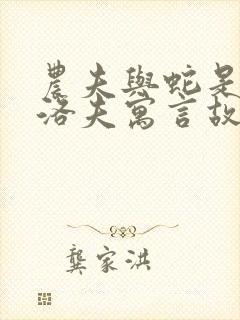 農夫與蛇是
洛夫寓言故
龔家洪